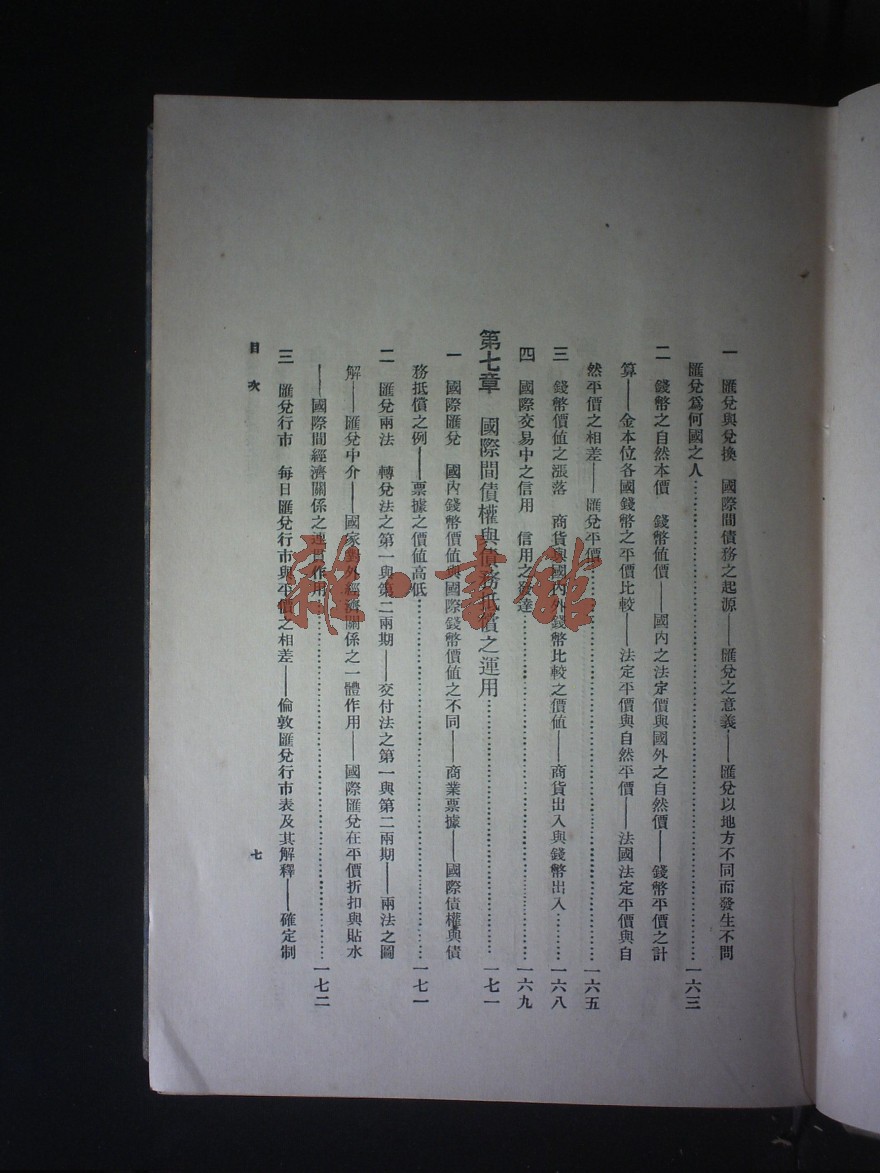 一　匯兌與兌換　國際間債務之起源——匯兌之意義——匯兌以地方不同而發生不問
匯兌爲何國之人……一六三
二　錢幣之自然本價　錢幣值價——國內之法定價與國外之自然價——錢幣平價之計
算——金本位各國錢幣之平價比較——法定平價與自然平價——法國法定平價與自
然平價之相差——匯兌平價……一六五
三　錢幣價値之漲落　商貨與國內外錢幣比較之價値——商貨出入與錢幣出入……一六八
四　國際交易中之信用　信用之發達……一六九
第七章　國際間債權與債務抵償之運用……一七一
一　國際匯兌　國內錢幣價値與國際錢幣價値之不同——商業票據——國際債權與債
務抵償之例——票據之價値高低……一七一
二　匯兌兩法　轉兌法之第一與第二兩期——交付法之第一與第二兩期——兩法之圖
解——匯兌中介——國家對外經濟關係之一體作用——國際匯兌在平價折扣與貼水
——國際間經濟關係之連貫作用……一七二
三　匯兌行市　每日匯兌行市與平價之相差——倫敦匯兌行市表及其解釋——確定制
目次
七
雜·書館